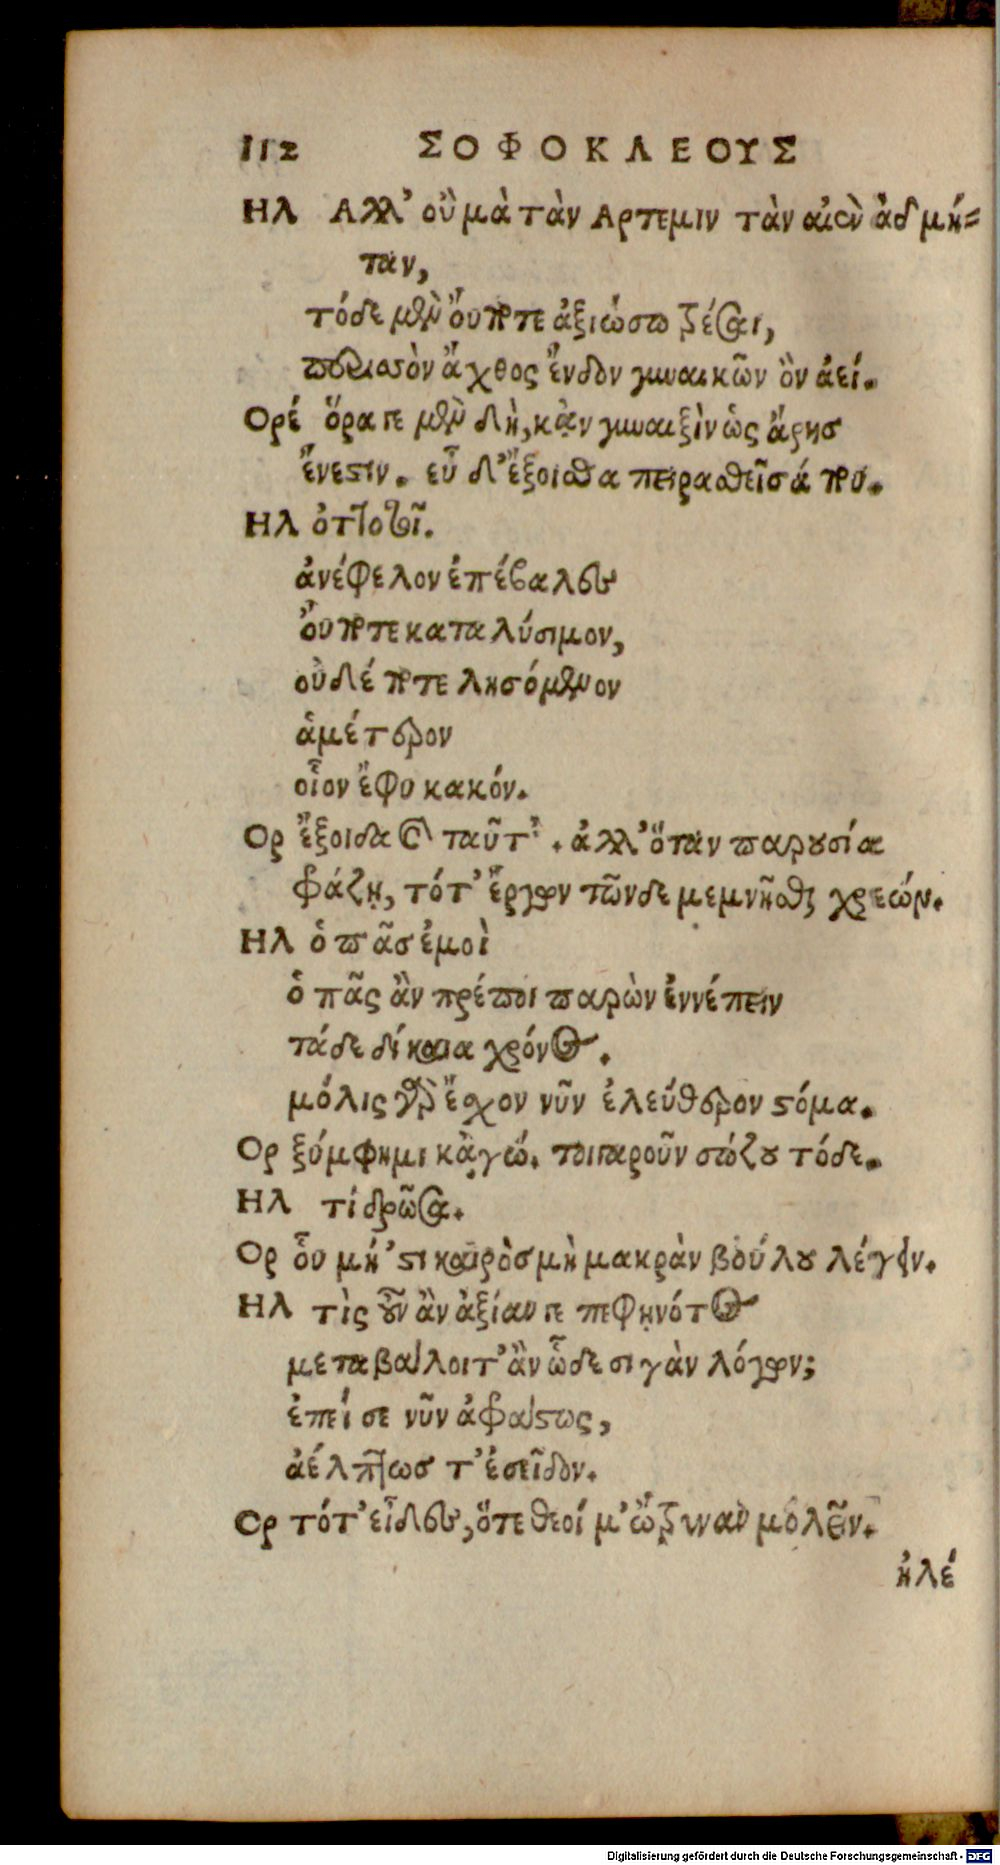 112 ΣΟΦΟΚΛΕΟΥΣ
Ηλ Αλλ' οὐ μὰ τὰν Αρτεμιν τὰν αἰὲν ἀδμή-
ταν,
τόδε μὲν ὄυποτε ἀξιώσω τρέσαι,
περισσὸν ἄχθος ἔνδον γυναικῶν ὂν ἀεί.
Ορέ ὅρα γε μὲν δὴ, κᾀν γυναιξὶν ὡς ἄρησ
ἔνεστιν. εὖ δ' ἔξοισθα πειραθεῖσά που.
Ηλ ὀτ]οτοῖ.
ἀνέφελον ἐπέβαλες
ὄυποτε καταλύσιμον,
οὐδέ ποτε λησόμενον
ἁμέτερον
οἷον ἔφυ κακόν.
Ορ ἔξοιδα καὶ ταῦτ'. ἀλλ' ὅταν παρουσία
φράζῃ, τότ' ἔργων τῶνδε μεμνῆσθαι χρεών.
Ηλ ὁ πᾶσ ἐμοὶ
ὁ πᾶς ἂν πρέποι παρὼν ἐννέπειν
τάδε δίκαια χρόνος.
μόλις γὰρ ἔσχον νῦν ἐλεύθερον στόμα.
Ορ ξύμφημι κᾀγώ. τοιγαροῦν σώζου τόδε.
Ηλ τί δρῶσα.
Ορ ὗ μή 'στι καιρὸσ μὴ μακρὰν βούλου λέγειν.
Ηλ τὶς οὖν ἂν ἀξίαν γε πεφηνότος
μεταβάλοιτ' ἂν ὧδε σιγὰν λόγων;
ἐπεί σε νῦν ἀφράστως,
ἀέλπτως τ' ἐσεῖδον.
Ορ τότ' εἶδες, ὅτε θεοί μ' ὤτρυναν μολεῖν.
ἠλέ
Digitalisierung gefördert durch die Deutsche Forschungsgemeinschaft - DFG